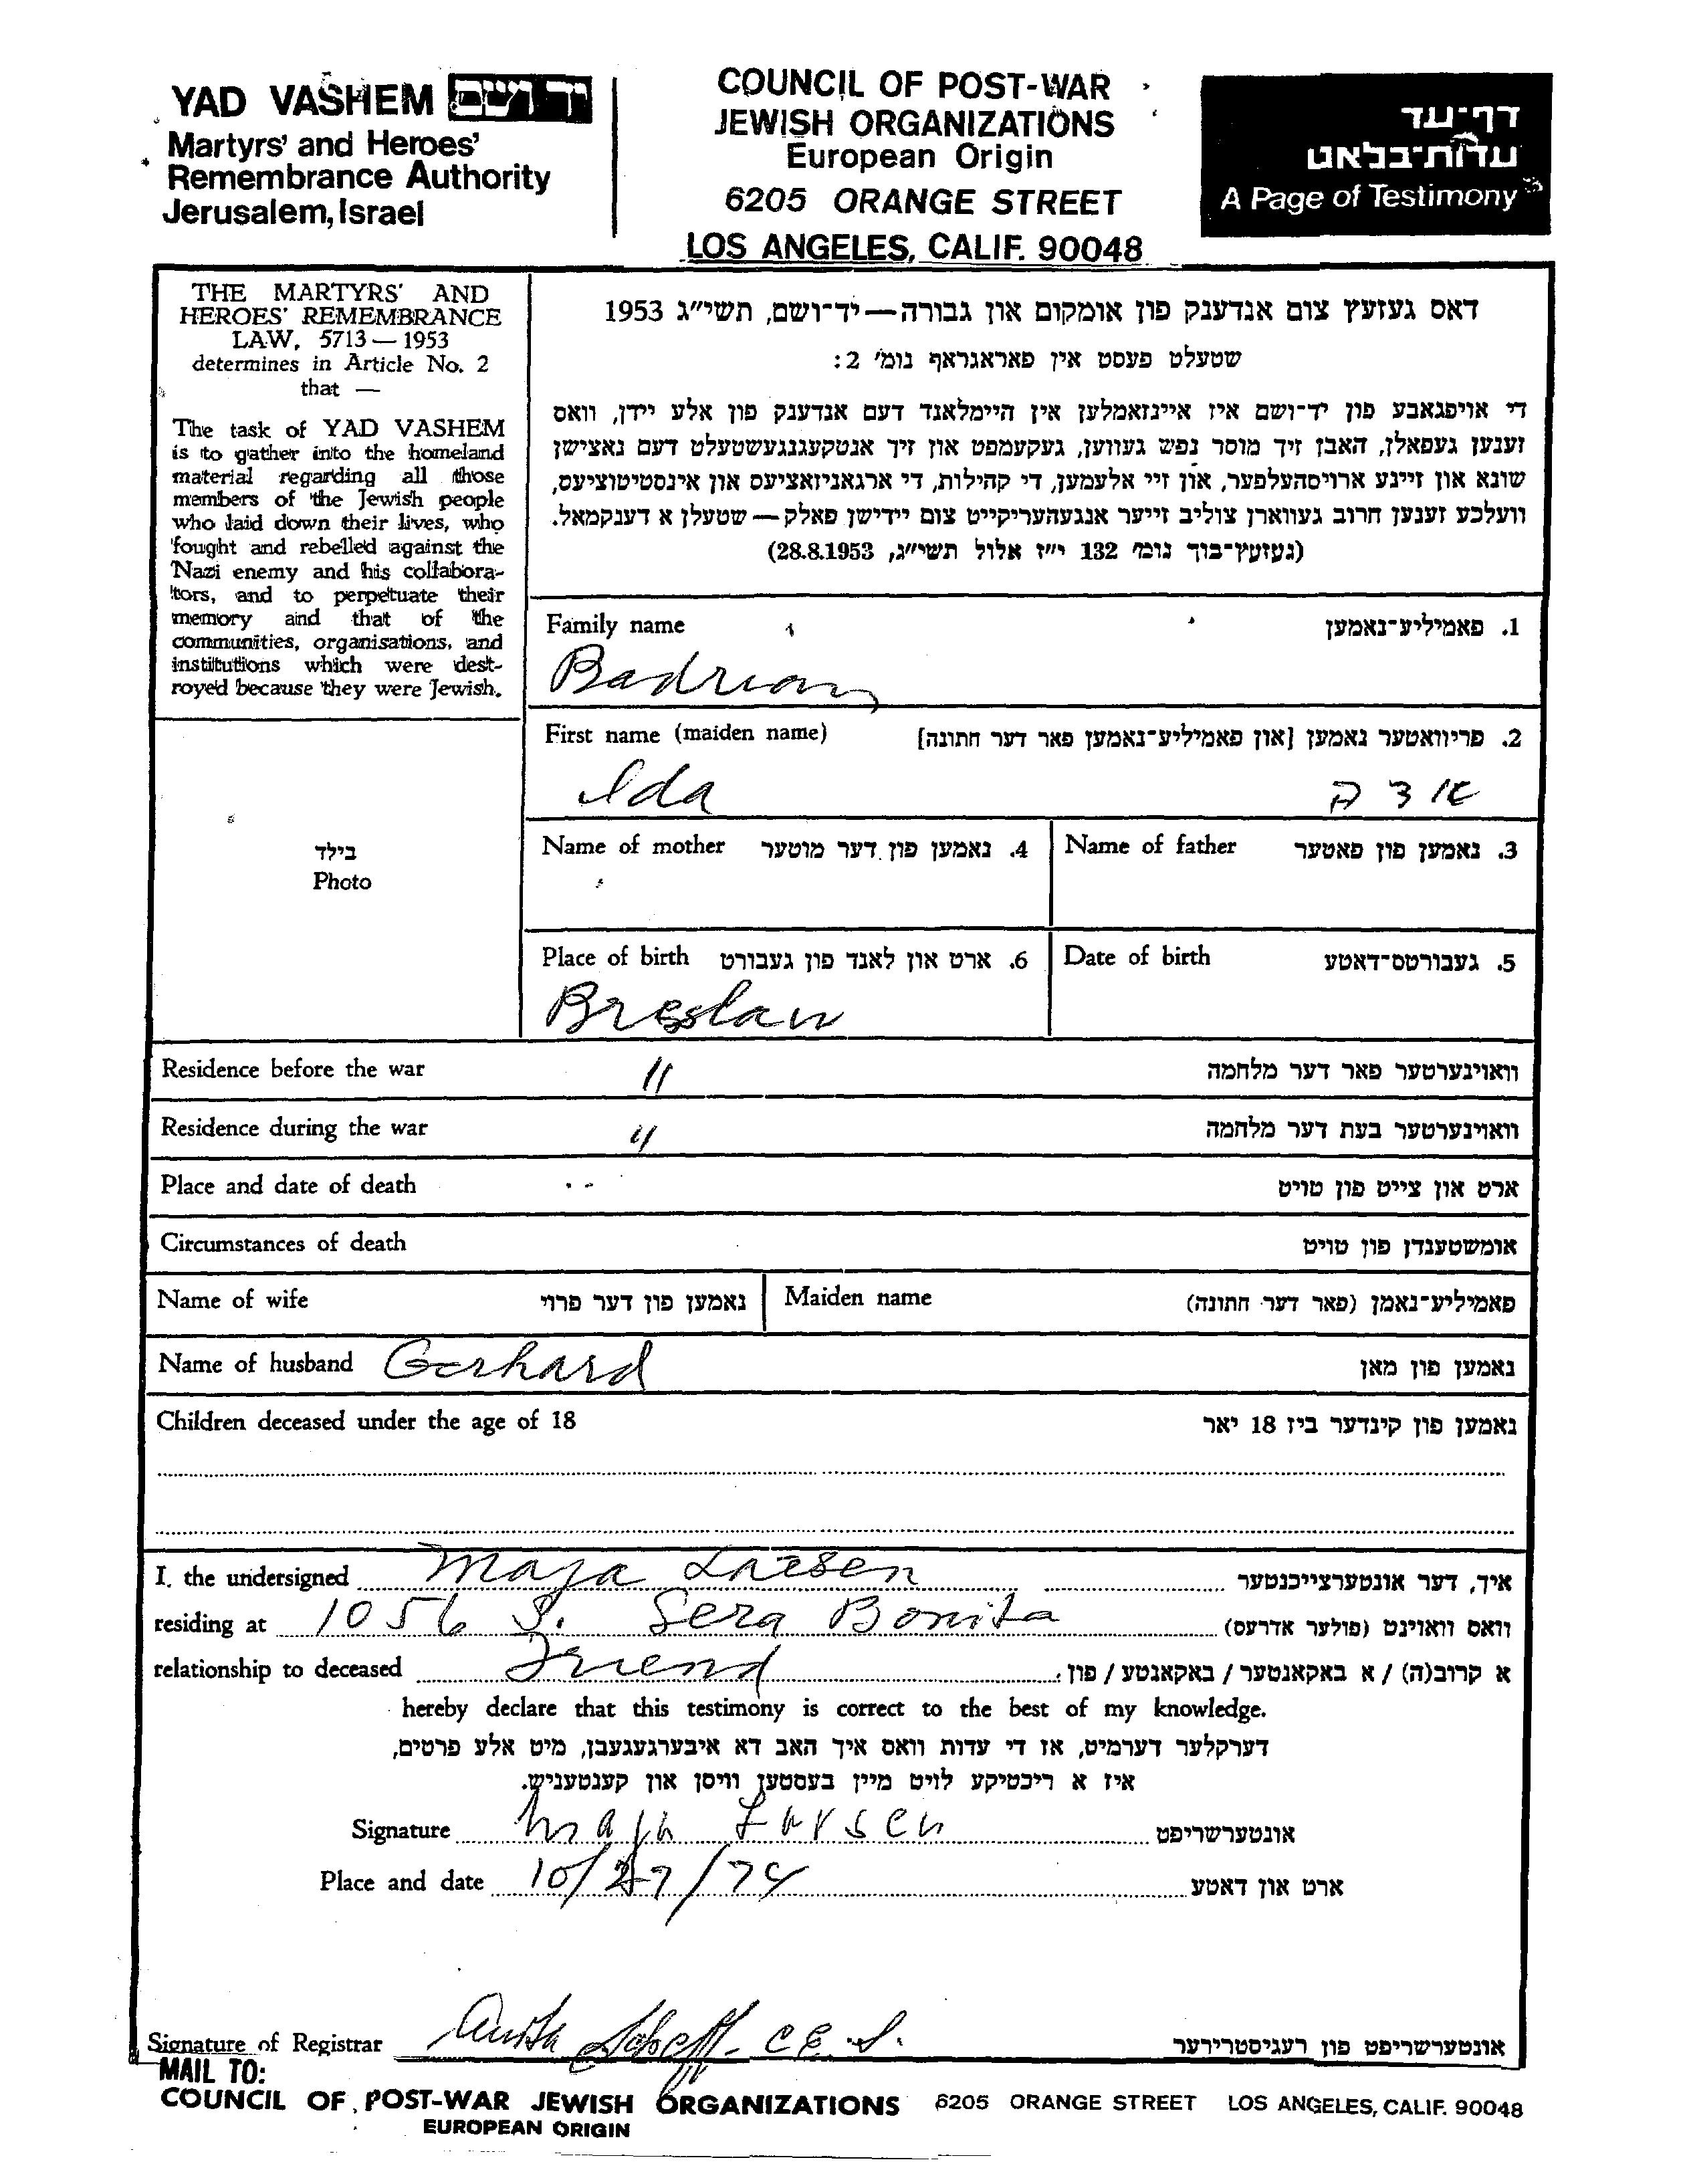 YAD VASHEM יד ושם
Martyrs' and Heroes'
Remembrance Authority
Jerusalem, Israel
COUNCIL OF POST-WAR
JEWISH ORGANIZATIONS
European Origin
6205 ORANGE STREET
LOS ANGELES, CALIF. 90048
דף־עד
עדות־בלאט
A Page of Testimony
THE MARTYRS' AND
HEROES' REMEMBRANCE
LAW, 5713—1953
determines in Article No. 2
that —
The task of YAD VASHEM
is to gather into the homeland
material regarding all those
members of the Jewish people
who laid down their lives, who
fought and rebelled against the
Nazi enemy and his collabora-
tors, and to perpetuate their
memory and that of the
communities, organisations, and
institutions which were dest-
royed because they were Jewish.
דאס געזעץ צום אנדענק פון אומקום און גבורה — יד־ושם, תשי"ג 1953
שטעלט פעסט אין פאראגראף נומ' 2:
די אויפגאבע פון יד־ושם איז איינזאמלען אין היימלאנד דעם אנדענק פון אלע יידן, וואס
זענען געפאלן, האבן זיך מוסר נפש געווען, געקעמפט און זיך אנטקעגנגעשטעלט דעם נאצישן
שונא און זיינע ארויסהעלפער, און זיי אלעמען, די קהילות, די ארגאניזאציעס און אינסטיטוציעס,
וועלכע זענען חרוב געווארן צוליב זייער אנגעהעריקייט צום יידישן פאלק — שטעלן א דענקמאל.
(געזעץ־בוך נומ' 132 י"ז אלול תשי"ג, 28.8.1953)
Family name 1. פאמיליע־נאמען
Badrian
First name (maiden name) 2. פריוואטער נאמען [און פאמיליע־נאמען פאר דער חתונה]
Ida אידה
בילד
Photo
Name of mother 4. נאמען פון דער מוטער Name of father 3. נאמען פון פאטער
Place of birth 6. ארט און לאנד פון געבורט Date of birth 5. געבורטס־דאטע
Breslau
Residence before the war " וואוינערטער פאר דער מלחמה
Residence during the war " וואוינערטער בעת דער מלחמה
Place and date of death ארט און צייט פון טויט
Circumstances of death אומשטענדן פון טויט
Name of wife נאמען פון דער פרוי Maiden name פאמיליע־נאמן (פאר דער חתונה)
Name of husband Gerhard נאמען פון מאן
Children deceased under the age of 18 נאמען פון קינדער ביז 18 יאר
I, the undersigned Maja Larsen איך, דער אונטערצייכנטער
residing at 1056 S. Sera Bonita וואס וואוינט (פולער אדרעס)
relationship to deceased Friend א קרוב(ה) / א באקאנטער / באקאנטע / פון
hereby declare that this testimony is correct to the best of my knowledge.
דערקלער דערמיט, אז די עדות וואס איך האב דא איבערגעגעבן, מיט אלע פרטים,
איז א ריכטיקע לויט מיין בעסטען וויסן און קענטעניש.
Signature Maja Larsen אונטערשריפט
Place and date 10/27/74 ארט און דאטע
Signature of Registrar Anita אונטערשריפט פון רעגיסטרירער
MAIL TO:
COUNCIL OF POST-WAR JEWISH ORGANIZATIONS 6205 ORANGE STREET LOS ANGELES, CALIF. 90048
EUROPEAN ORIGIN